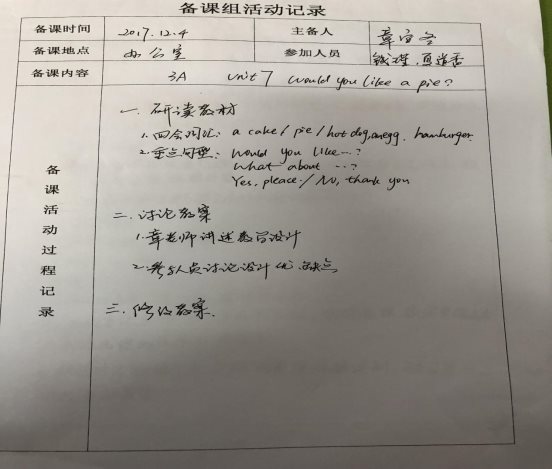 备课组活动记录
备课时间 2017.12.4 主备人 章
备课地点 办公室 参加人员 钱
备课内容 3A unit 7 would you like a pie?
备课活动过程记录
一. 研读教材
1. 四会词汇: a cake / pie / hot dog, an egg, hamburger.
2. 重点句型: Would you like …?
What about …?
Yes, pleace. / No, thank you
二. 讨论教案
1. 章老师讲述教学设计
2. 参与人员讨论设计优缺点
三. 修改教案.